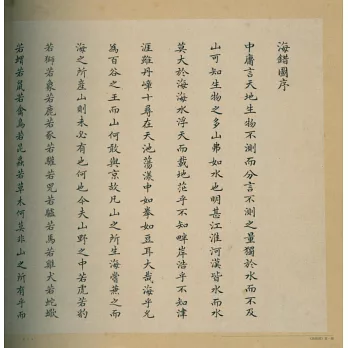 海錯圖序
中庸言天地生物不測而分言不測之量獨於水而不及
山可知生物之多山弗如水也明甚江淮河漢皆水而水
莫大於海海水浮天而載地茫乎不知畔岸浩乎不知津
涯雖丹嶂十尋在天池蕩漾中如拳如豆耳大哉海乎允
為百谷之王而山何敢與京故凡山之所生海嘗兼之而
海之所產山則未必有也何也今夫山野之中若虎若豹
若獅若象若鹿若豕若兕若驢若馬若雞犬若蛇蠍
若蝟若鼠若禽鳥若昆蟲若草木何莫非山之所有乎而